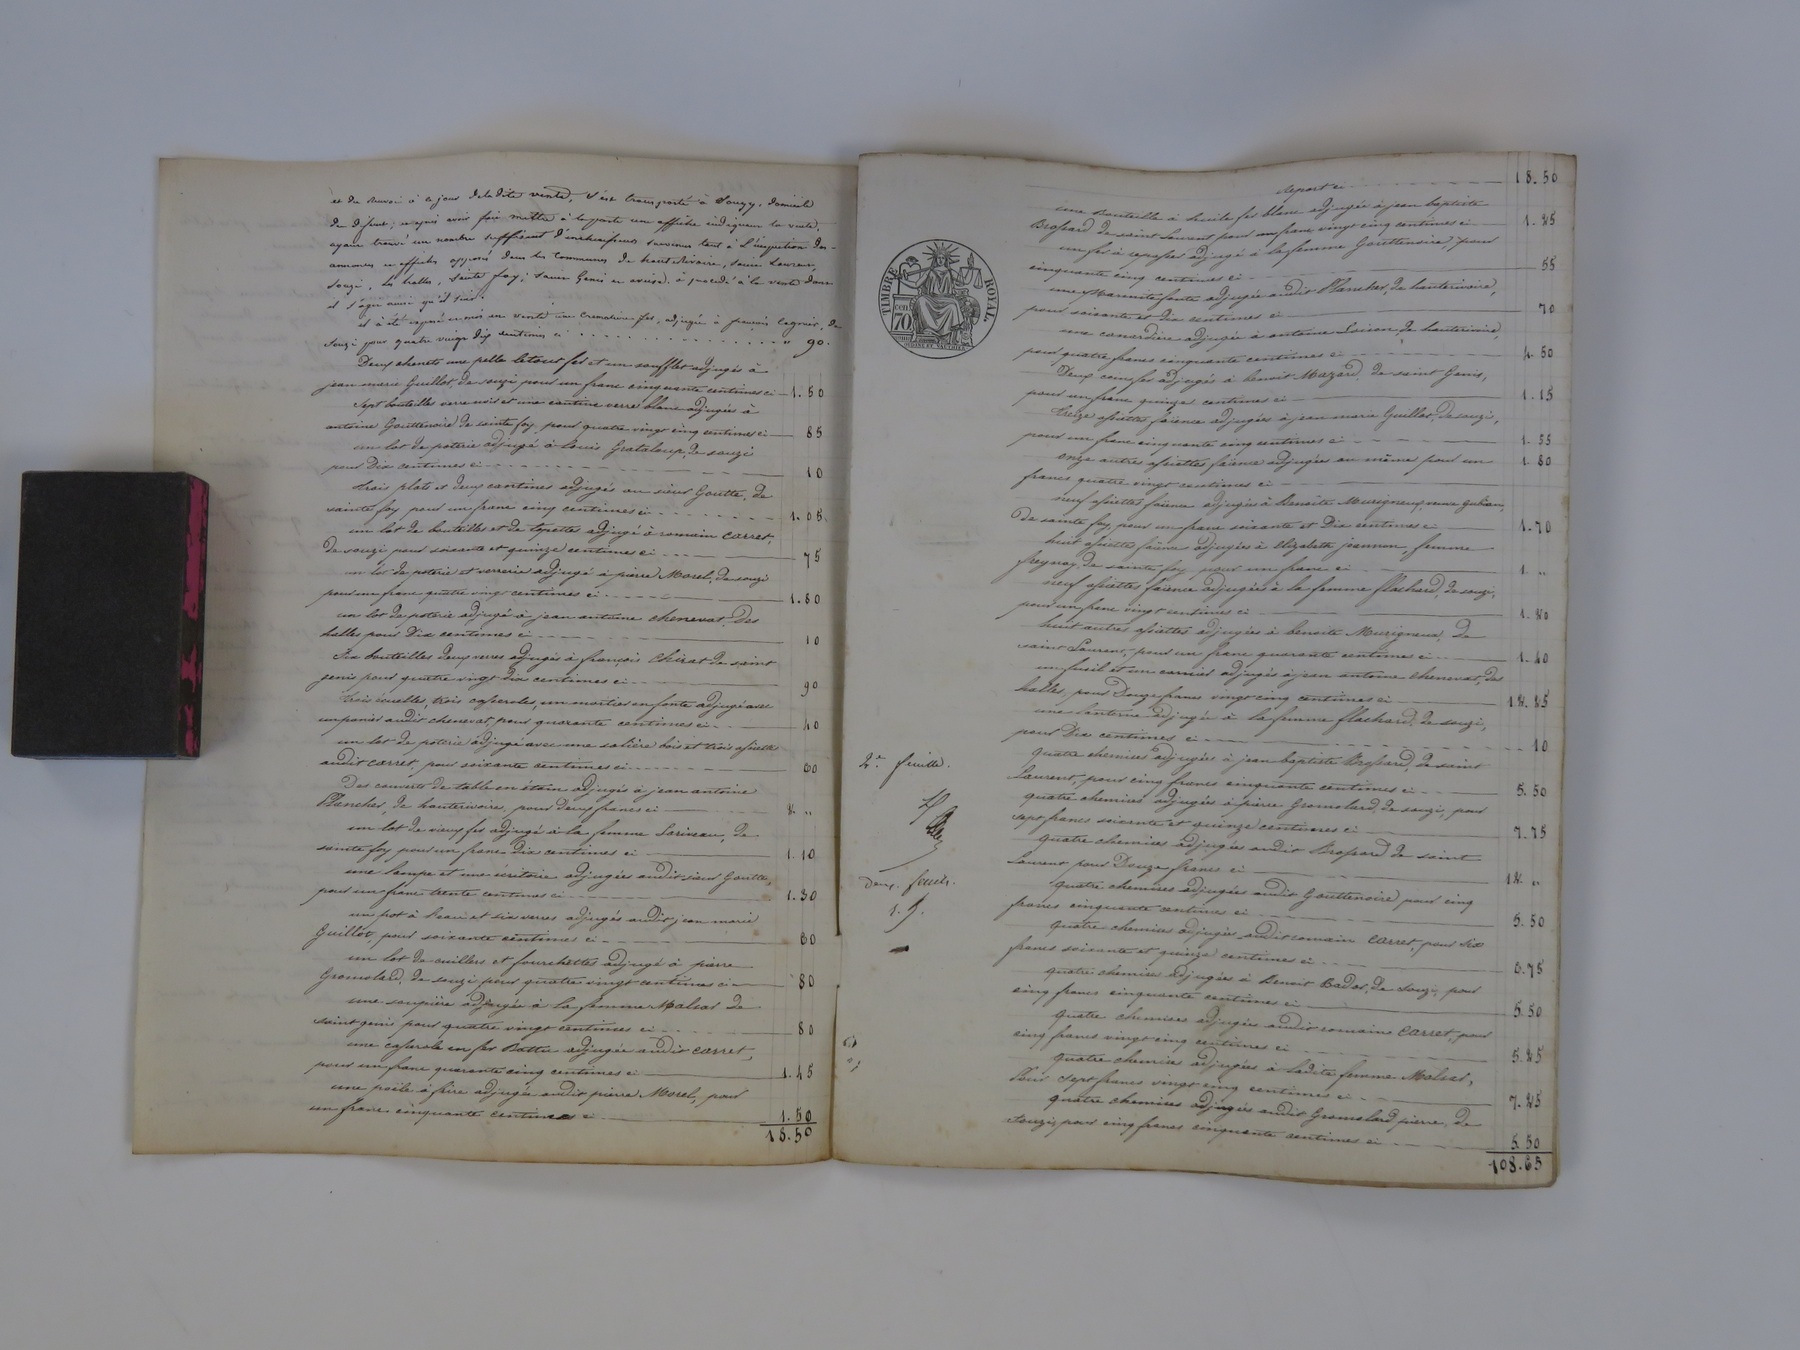 et du renvoi à ce jour de la dite vente, s'est transporté à Souzy, domicile
du défunt, et après avoir fait mettre à la porte une affiche indiquant la vente,
ayant trouvé un nombre suffisant d'enchérisseurs survenus tant à l'inspection des
annonces et affiches apposées dans les communes de haute Rivoire, saint Laurent,
souzi, les halles, sainte foy, saint Genis et avisé, à procédé à la vente dont
il s'agit ainsi qu'il suit.
il a été exposé et mis en vente une cremaillere fer, adjugée à françois Cognier, de
Souzi pour quatre vingt dix centimes ci " 90.
Deux chenets une pelle le tout fer et un soufflet adjugés à
jean marie Guillot, de souzi pour un franc cinquante centimes ci 1. 50
Sept bouteilles verre noir et une cantine verre blanc adjugées à
antoine Gouttenoire de sainte foy, pour quatre vingt cinq centimes ci 85
un lot de poterie adjugé à Louis Grataloup, de souzi
pour Dix centimes ci 10
trois plats et deux cantines adjugés au sieur Goutte, de
sainte foy pour un franc cinq centimes ci 1. 05
un lot de bouteilles et de topettes adjugé à romain Carret,
de souzi pour soixante et quinze centimes ci 75
un lot de poterie et verrerie adjugé à pierre Morel, de souzi
pour un franc quatre vingt centimes ci 1. 80
un lot de poterie adjugé à jean antoine chenevat, Des
halles pour Dix centimes ci 10
Six bouteilles deux verres adjugés à françois Chirat de saint
genis pour quatre vingt dix centimes ci 90
trois écuelles, trois casseroles, un mortier en fonte adjugé avec
un panier audit chenevat, pour quarante centimes ci 40
un lot de poterie adjugé avec une salière bois et trois assiettes
audit Carret, pour soixante centimes ci 60
Des couverts de table en étain adjugés à jean antoine
Plancher, de hauterivoire, pour deux francs ci 2. "
un lot de vieux fer adjugé à la femme Sariseau, de
sainte foy pour un franc dix centimes ci 1. 10
une lampe et une écritoire adjugées audit sieur Goutte,
pour un franc trente centimes ci 1. 30
un pot à l'eau et six verres adjugés audit jean marie
Guillot, pour soixante centimes ci 60
un lot de cuillers et fourchettes adjugé à pierre
Gromolard, de souzi pour quatre vingt centimes ci 80
une soupière adjugée à la femme Malsat de
saint genis pour quatre vingt centimes ci 80
une casserole en fer Battu adjugée audit Carret,
pour un franc quarante cinq centimes ci 1. 45
une poële à frire adjugée audit pierre Morel, pour
un franc cinquante centimes ci 1. 50
18. 50
TIMBRE ROYAL
70
2e feuille.
Deux feuill.
report ci 18. 50
une Bouteille à huile fer blanc adjugée à jean baptiste
Brossard de saint Laurent pour un franc vingt cinq centimes ci 1. 25
un fer à repasser adjugé à la femme Gouttenoire, pour
cinquante cinq centimes ci 55
une Marmite fonte adjugée audit Plancher, de hauterivoire,
pour soixante et dix centimes ci 70
une canardière adjugée à antoine Loison, de hauterivoire,
pour quatre francs cinquante centimes ci 4. 50
Deux adjugés à benoit Mazard, de saint Genis,
pour un franc quinze centimes ci 1. 15
treize assiettes faïence adjugées à jean marie Guillot, de souzi,
pour un franc cinquante cinq centimes ci 1. 55
onze autres assiettes faïence adjugées au même pour un
franc quatre vingt centimes ci 1. 80
neuf assiettes faïence adjugées à Benoîte Murigneux, veuve
de sainte foy, pour un franc soixante et Dix centimes ci 1. 70
huit assiettes faïence adjugées à Elizabeth jeannon, femme
freynay, de sainte foy pour un franc ci 1. "
neuf assiettes faïence adjugées à la femme flachard, de souzi,
pour un franc vingt centimes ci 1. 20
huit autres assiettes adjugées à benoite Murigneux, de
saint Laurent, pour un franc quarante centimes ci 1. 40
un fusil et un carnier adjugés à jean antoine chenevat, des
halles, pour Douze francs vingt cinq centimes ci 12. 25
une lanterne adjugée à la femme flachard, de souzi,
pour Dix centimes ci 10
quatre chemises adjugées à jean baptiste Brossard, de saint
Laurent, pour cinq francs cinquante centimes ci 5. 50
quatre chemises adjugées à pierre Gromolard, de souzi, pour
sept francs soixante et quinze centimes ci 7. 75
quatre chemises adjugées audit Brossard de saint
Laurent pour Douze francs ci 12. "
quatre chemises adjugées audit Gouttenoire pour cinq
francs cinquante centimes ci 5. 50
quatre chemises adjugées audit romain Carret, pour six
francs soixante et quinze centimes ci 6. 75
quatre chemises adjugées à Benoit Badot, de Souzi, pour
cinq francs cinquante centimes ci 5. 50
quatre chemises adjugées audit romain Carret, pour
cinq francs vingt cinq centimes ci 5. 25
quatre chemises adjugées à ladite femme Malsat,
pour sept francs vingt cinq centimes ci 7. 25
quatre chemises adjugées audit Gromolard pierre, de
souzi, pour cinq francs cinquante centimes ci 5. 50
108. 65